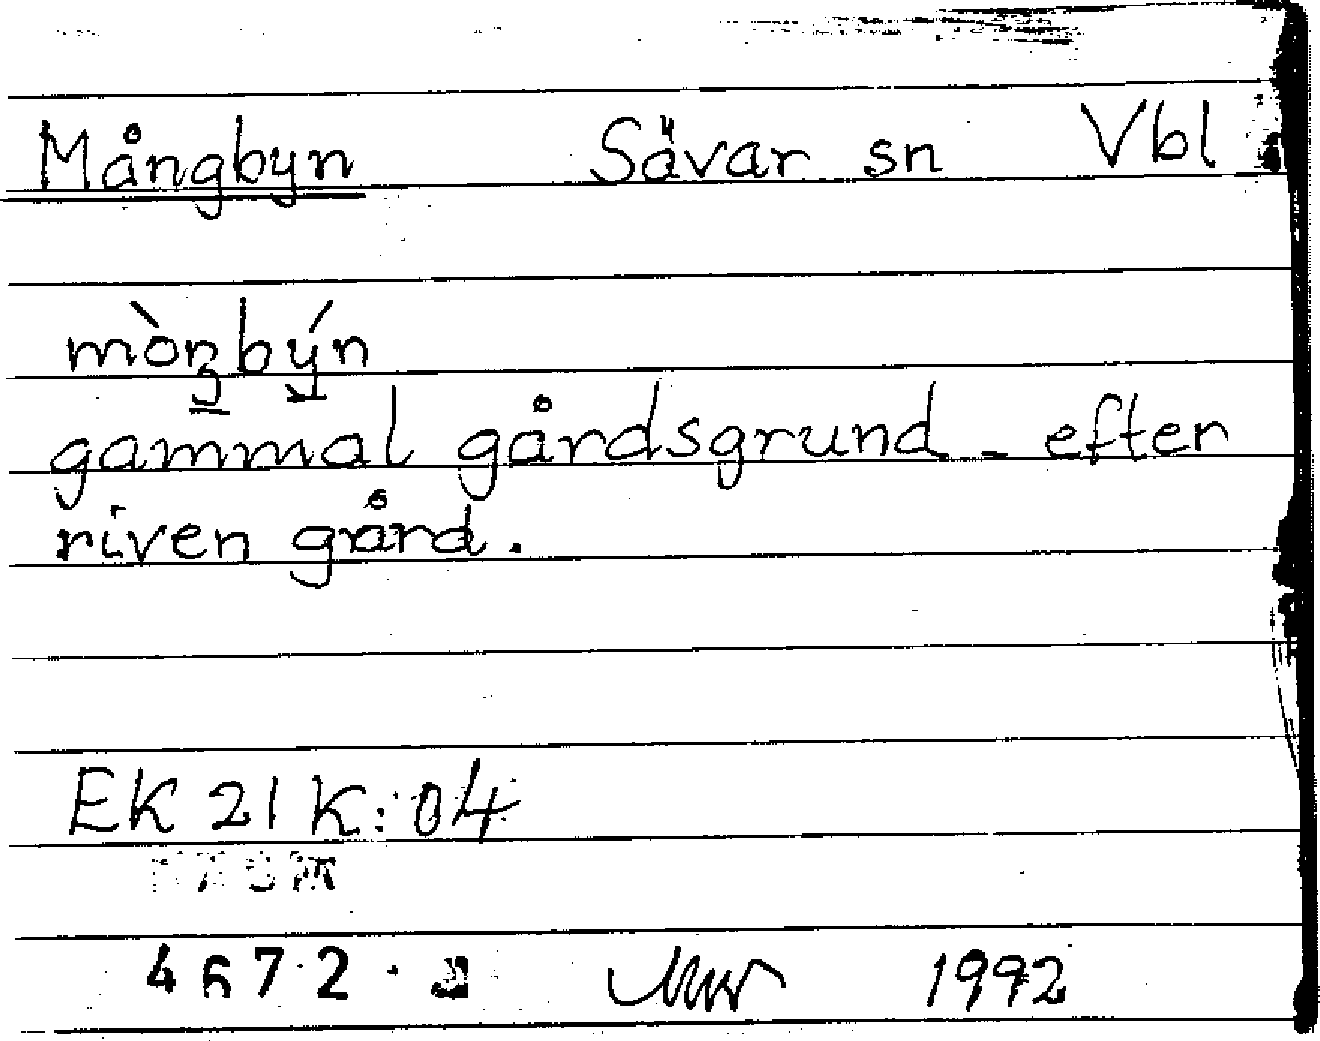 Mångbyn Sävar sn Vbl
mòŋbýn
gammal gårdsgrund - efter
riven gård.
EK 21 K: 04
4672
1992